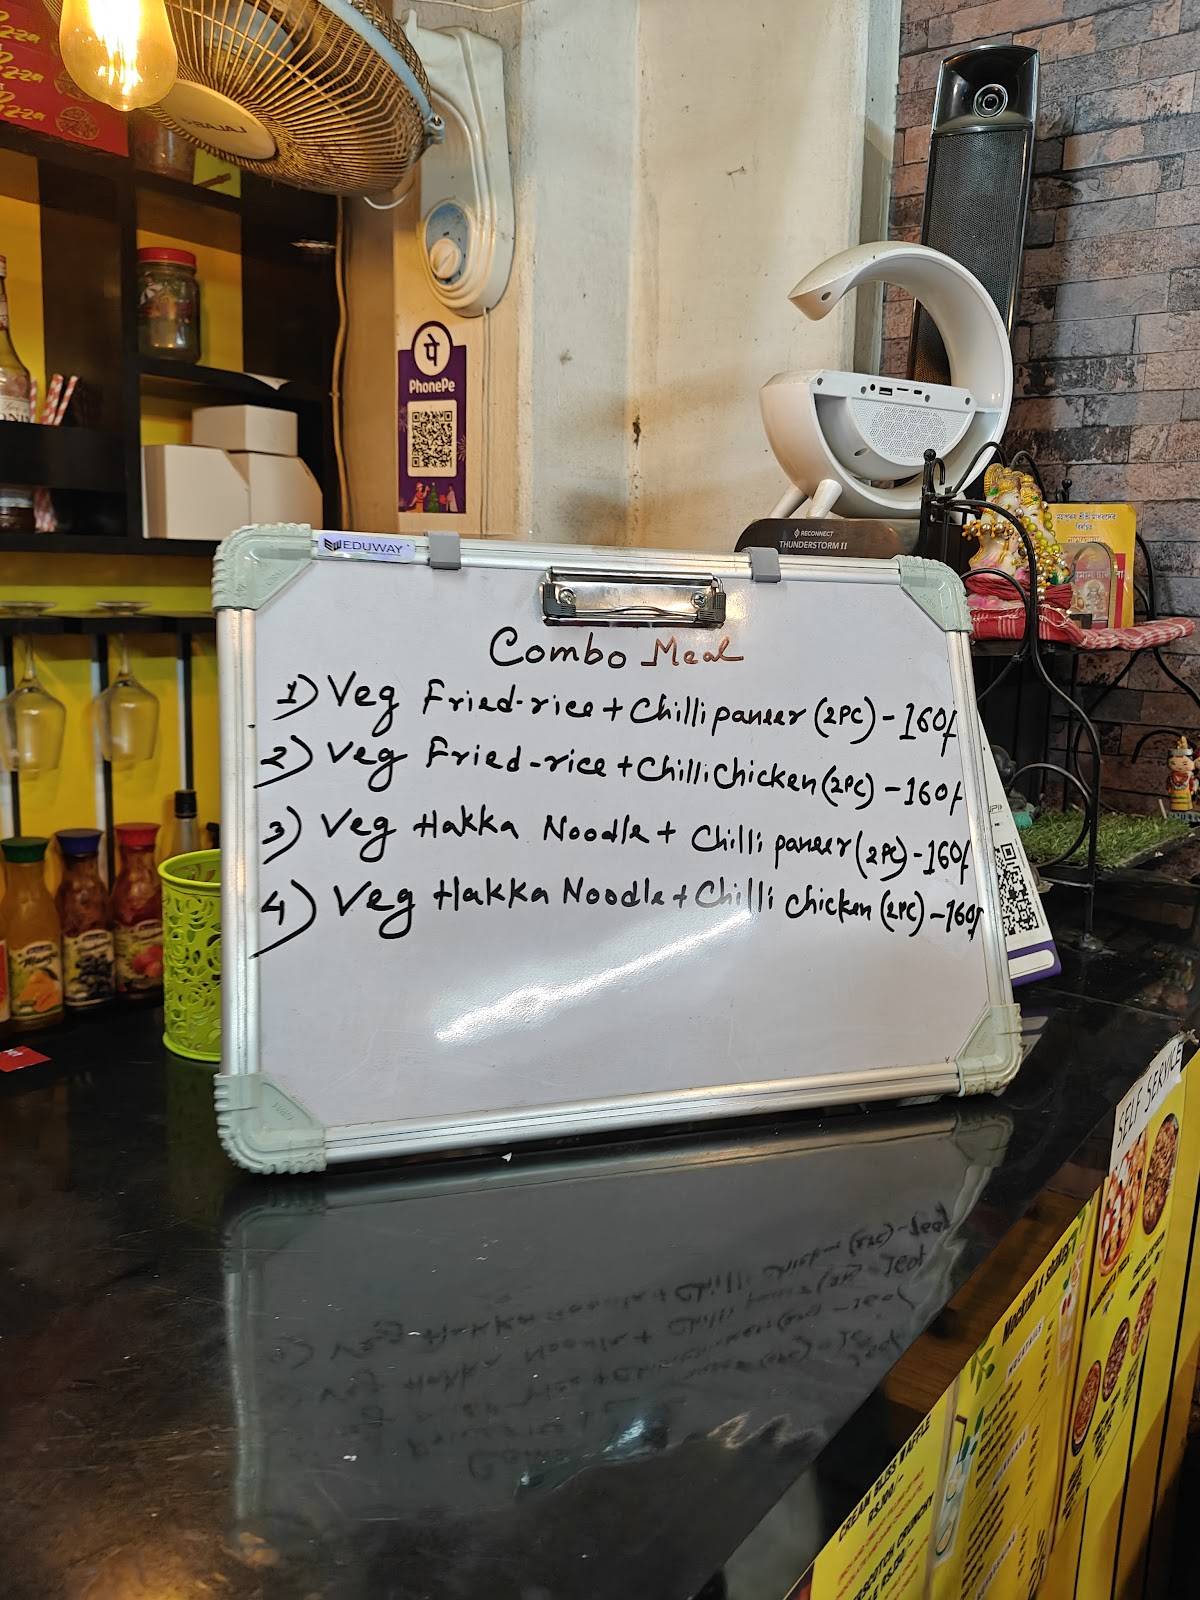 BAJAJ
पे
PhonePe
RECONNECT
THUNDERSTORM II
EDUWAY
Combo Meal
1) Veg Fried-rice + Chilli paneer (2PC) - 160/
2) Veg Fried-rice + Chilli Chicken (2PC) - 160/
3) Veg Hakka Noodle + Chilli paneer (2PC) - 160/
4) Veg Hakka Noodle + Chilli chicken (2PC) - 160/
SELF SERVICE
Mocktail & shakes
CREAM BLISS WAFFLE
RS.100/-